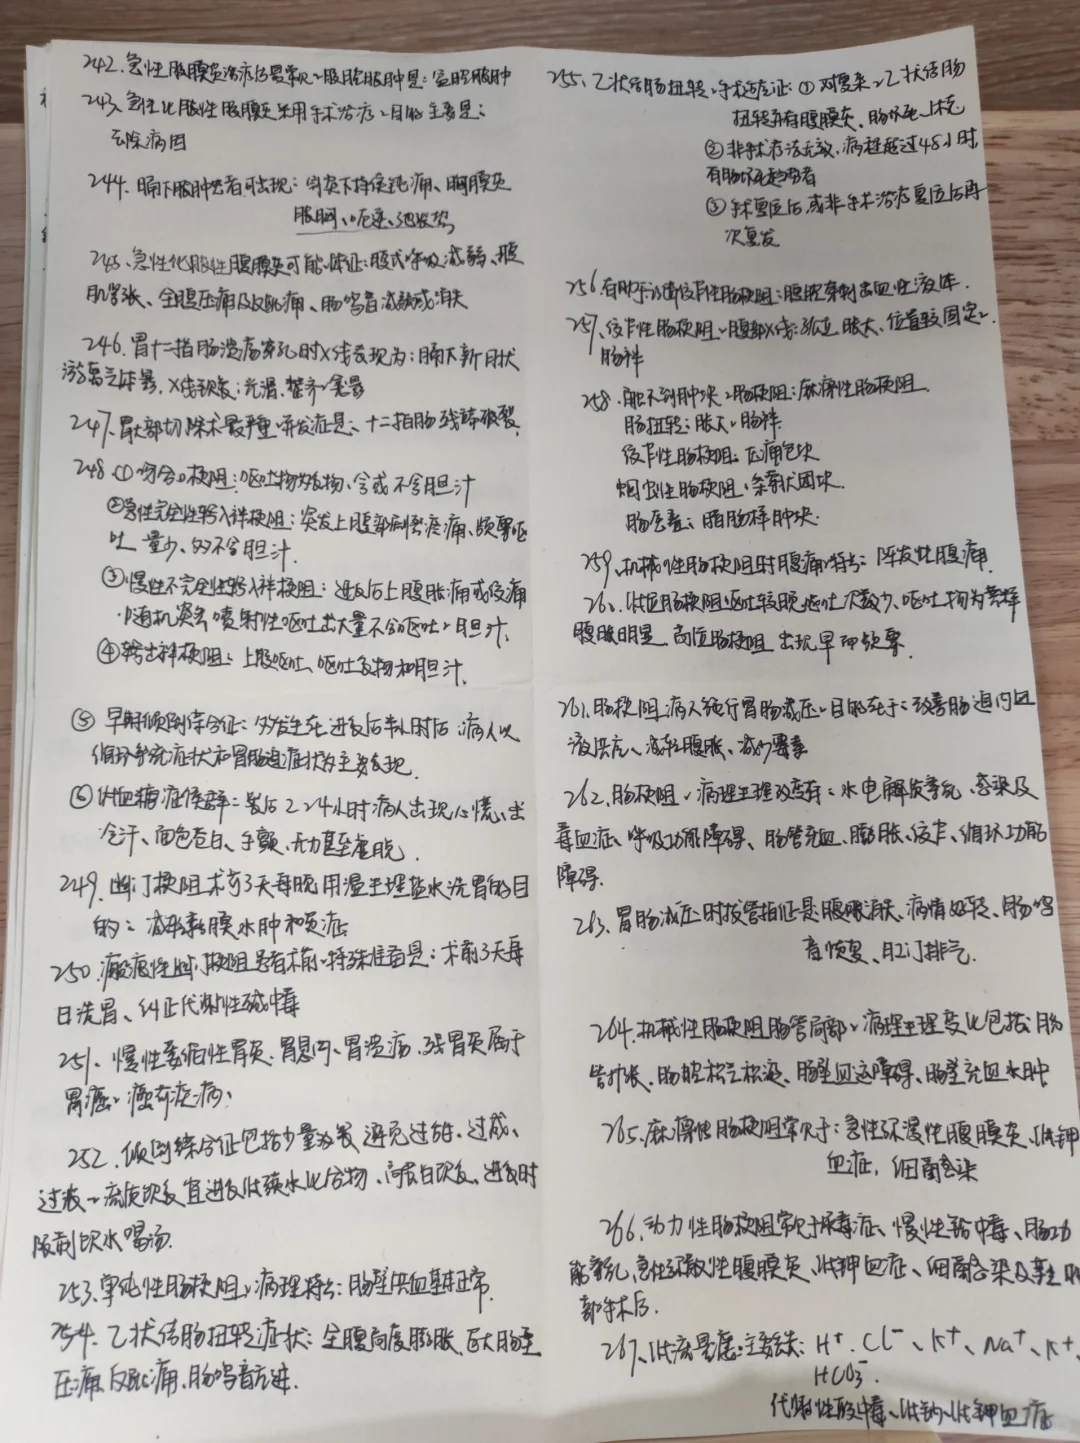 242.急性腹膜炎治疗后最常见的腹腔脓肿是:盆腔脓肿
243.急性化脓性腹膜炎采用手术治疗,目的主要是:
去除病因
244.膈下脓肿患者可出现:剑突下持续钝痛、胸膜炎
呃逆、
245.急性化脓性腹膜炎可能体征:腹式呼吸减弱、腹
肌紧张、全腹压痛及反跳痛、肠鸣音减弱或消失
246.胃十二指肠溃疡穿孔时X线表现为:膈下新月状
游离气体影,X线钡餐:光滑、整齐龛影
247.胃大部切除术最严重并发症是:十二指肠残端破裂
248.①吻合口梗阻:呕吐物为食物、含或不含胆汁
②急性完全性输入袢梗阻:突发上腹部剧烈疼痛、频繁呕
吐 量少、多不含胆汁.
③慢性不完全性输入袢梗阻:进食后上腹胀痛或绞痛
随机突然喷射性呕吐出大量不含呕吐胆汁.
④输出袢梗阻:上腹呕吐、呕吐食物和胆汁.
⑤早期倾倒综合征:多发生在进食后半小时后,病人以
循环系统症状和胃肠道症状为主要表现.
⑥低血糖症候群:餐后2~24小时病人出现心慌、出
冷汗、面色苍白、手颤、无力甚至虚脱.
249.幽门梗阻术前3天每晚用温生理盐水洗胃的目
的:减轻黏膜水肿和炎症
250.瘢痕性幽门梗阻患者术前特殊准备是:术前3天每
日洗胃、纠正代谢性碱中毒
251.慢性萎缩性胃炎、胃息肉、胃溃疡、残胃炎属于
胃癌癌前疾病.
252.倾倒综合征包括少量多餐 避免过甜、过咸、
过浓流质饮食 宜进食低碳水化合物、高蛋白饮食、进食时
限制饮水喝汤.
253.单纯性肠梗阻病理特点:肠壁供血基本正常
254.乙状结肠扭转症状:全腹高度膨胀、
压痛、反跳痛、肠鸣音亢进.
255.乙状结肠扭转手术适应证:①对复杂乙状结肠
扭转并有腹膜炎、肠坏死、休克
②非手术疗法无效、病程超过48小时,
有肠坏死趋势者
③手术复位后或非手术治疗复位后再
次复发
256.有助于诊断绞窄性肠梗阻:腹腔穿刺出血性液体.
257.绞窄性肠梗阻腹部X线:孤立、胀大、位置较固定
肠袢
258.触不到肿块肠梗阻:麻痹性肠梗阻
肠扭转:胀大肠袢
绞窄性肠梗阻:压痛包块
蛔虫性肠梗阻:条索状团块
肠套叠:腊肠样肿块.
259.机械性肠梗阻时腹痛特点:阵发性腹痛
260.低位肠梗阻:呕吐较晚呕吐次数少、呕吐物为粪样
腹胀明显 高位肠梗阻 出现早而频繁.
261.肠梗阻病人须行胃肠减压目的在于:改善肠道内血
液供应、减轻腹胀、减少毒素
262.肠梗阻病理生理改变有:水电解质紊乱、感染及
毒血症、呼吸功能障碍、肠管充血、膨胀、绞窄、循环功能
障碍.
263.胃肠减压时拔管指征是腹胀消失、病情好转、肠鸣
音恢复、肛门排气.
264.机械性肠梗阻肠管局部病理生理变化包括:肠
管扩张、肠腔积气积液、肠壁血运障碍、肠壁充血水肿
265.麻痹性肠梗阻常见于:急性弥漫性腹膜炎、低钾
血症,细菌感染
266.动力性肠梗阻常见于尿毒症、慢性铅中毒、肠功
能紊乱、急性弥散性腹膜炎、低钾血症、细菌感染及某些
部手术后.
267.低病是意主要丢失:H⁺.Cl⁻、K⁺、Na⁺、K⁺、
HCO₃⁻
代谢性酸中毒、低钠低钾血症